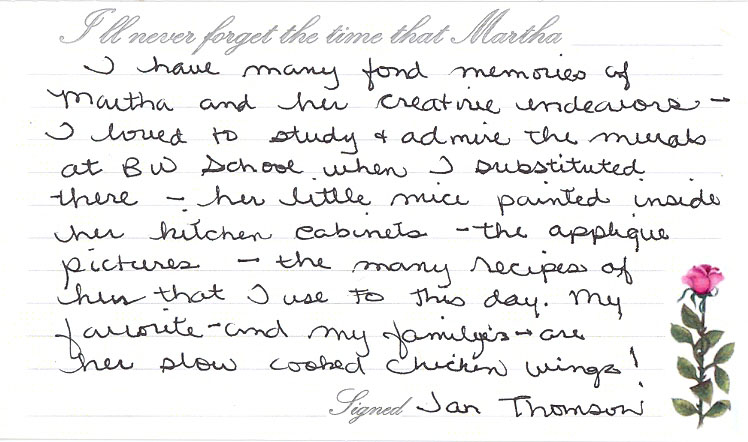 I'll never forget the time that Martha
I have many fond memories of
Martha and her creative endeavors -
I loved to study & admire the murals
at BW School when I substituted
there - her little mice painted inside
her kitchen cabinets - the applique
pictures - the many recipes of
hers that I use to this day. My
favorite - and my family's - are
her slow cooked chicken wings!
Signed Jan Thomson